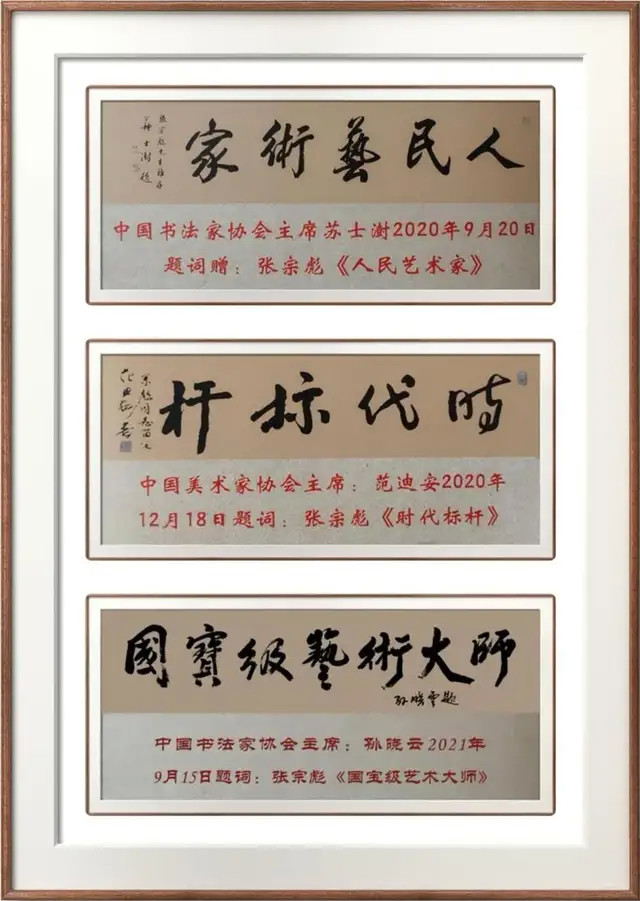 人民藝術家
張宗彪先生雅存
蘇士澍題
中国书法家协会主席苏士澍2020年9月20日
题词赠：张宗彪《人民艺术家》
時代标杆
宗彪同志留念
范迪安書
中国美术家协会主席：范迪安2020年
12月18日题词：张宗彪《时代标杆》
國寶级藝術大师
孙晓雲题
中国书法家协会主席：孙晓云2021年
9月15日题词：张宗彪《国宝级艺术大师》